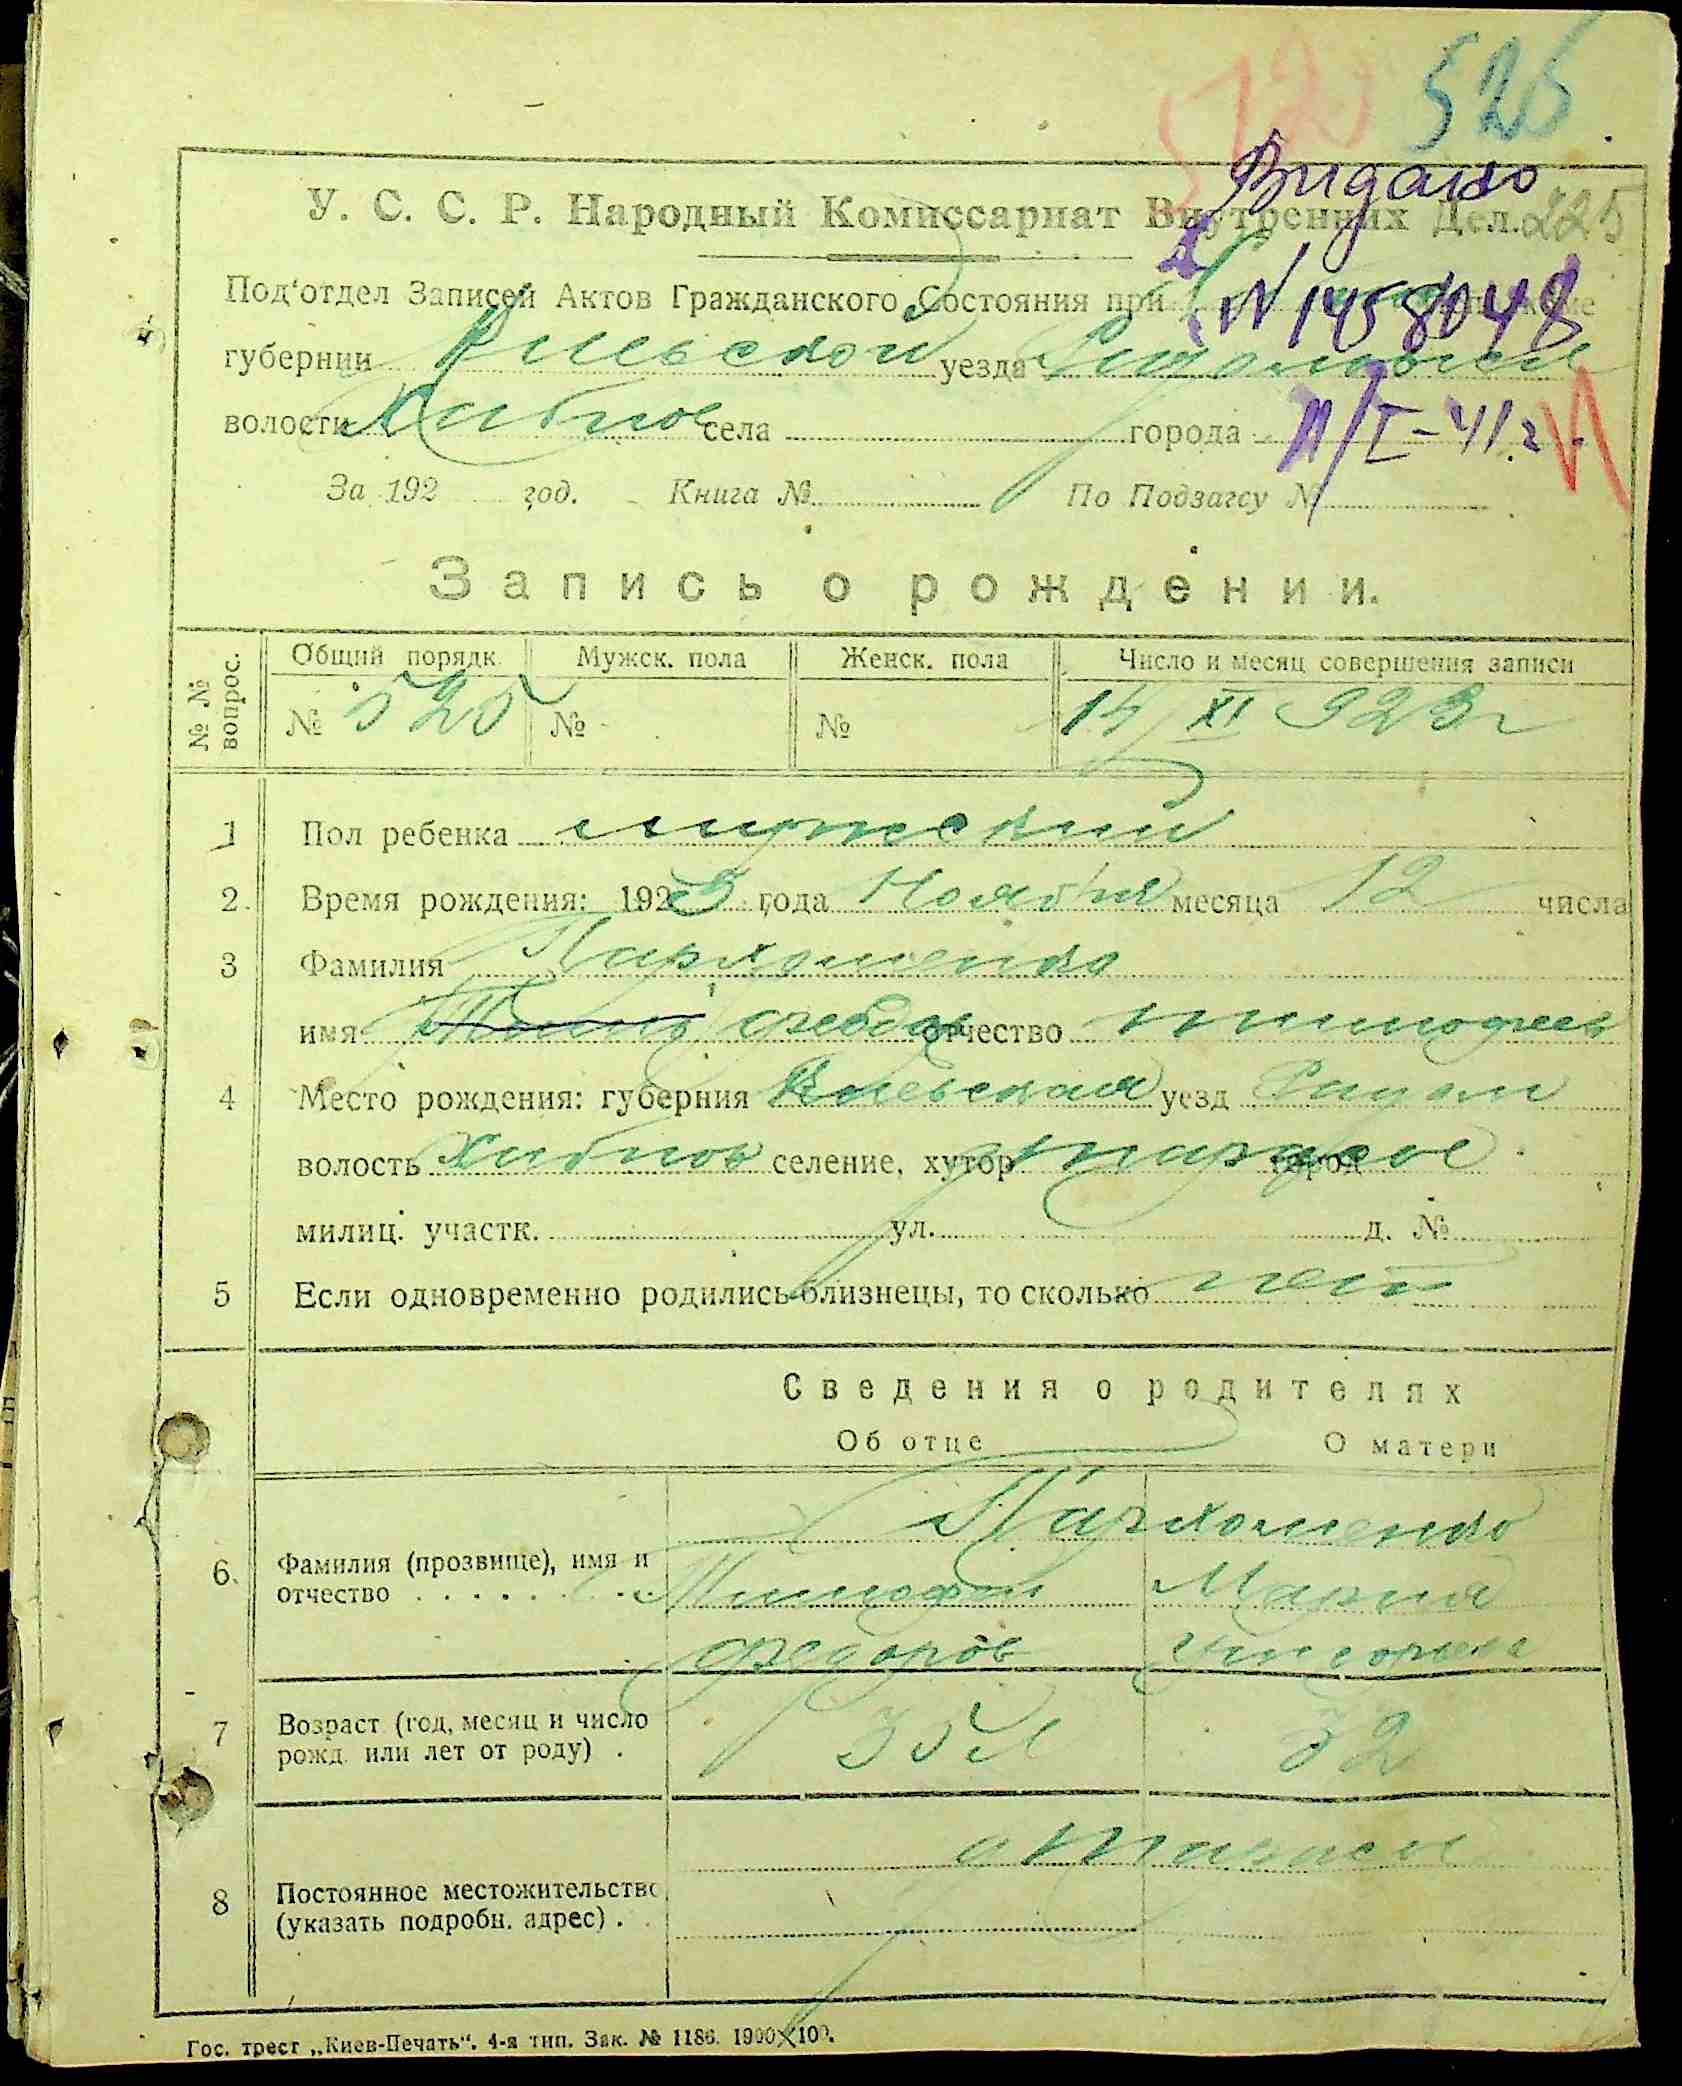 525
Видано
У. С. С. Р. Народный Комиссариат Внутренних Дел. 225
№ 1458048
Под'отдел Записей Актов Гражданского Состояния при
губернии Киевской уезда
волости Хабное села города 11/I-41 г.
За 192 год. Книга № По Подзагсу №
Запись о рождении.
№ № вопрос. Общий порядк. Мужск. пола Женск. пола Число и месяц совершения записи
№ 525 № № 14/XI 923 г
1 Пол ребенка мужский
2 Время рождения: 1923 года Ноября месяца 12 числа
3 Фамилия Пархоменко
имя отчество Тимофеев
4 Место рождения: губерния Киевская уезд Радом
волость Хабное селение, хутор город
милиц. участк. ул. д. №
5 Если одновременно родились близнецы, то сколько нет
Сведения о родителях
Об отце О матери
Пархоменко
6 Фамилия (прозвище), имя и отчество Тимофей Мария
Федоров
7 Возраст (год, месяц и число рожд. или лет от роду) 35 л 32
8 Постоянное местожительство (указать подробн. адрес)
Гос. трест „Киев-Печать“. 4-я тип. Зак. № 1186. 1900×100.